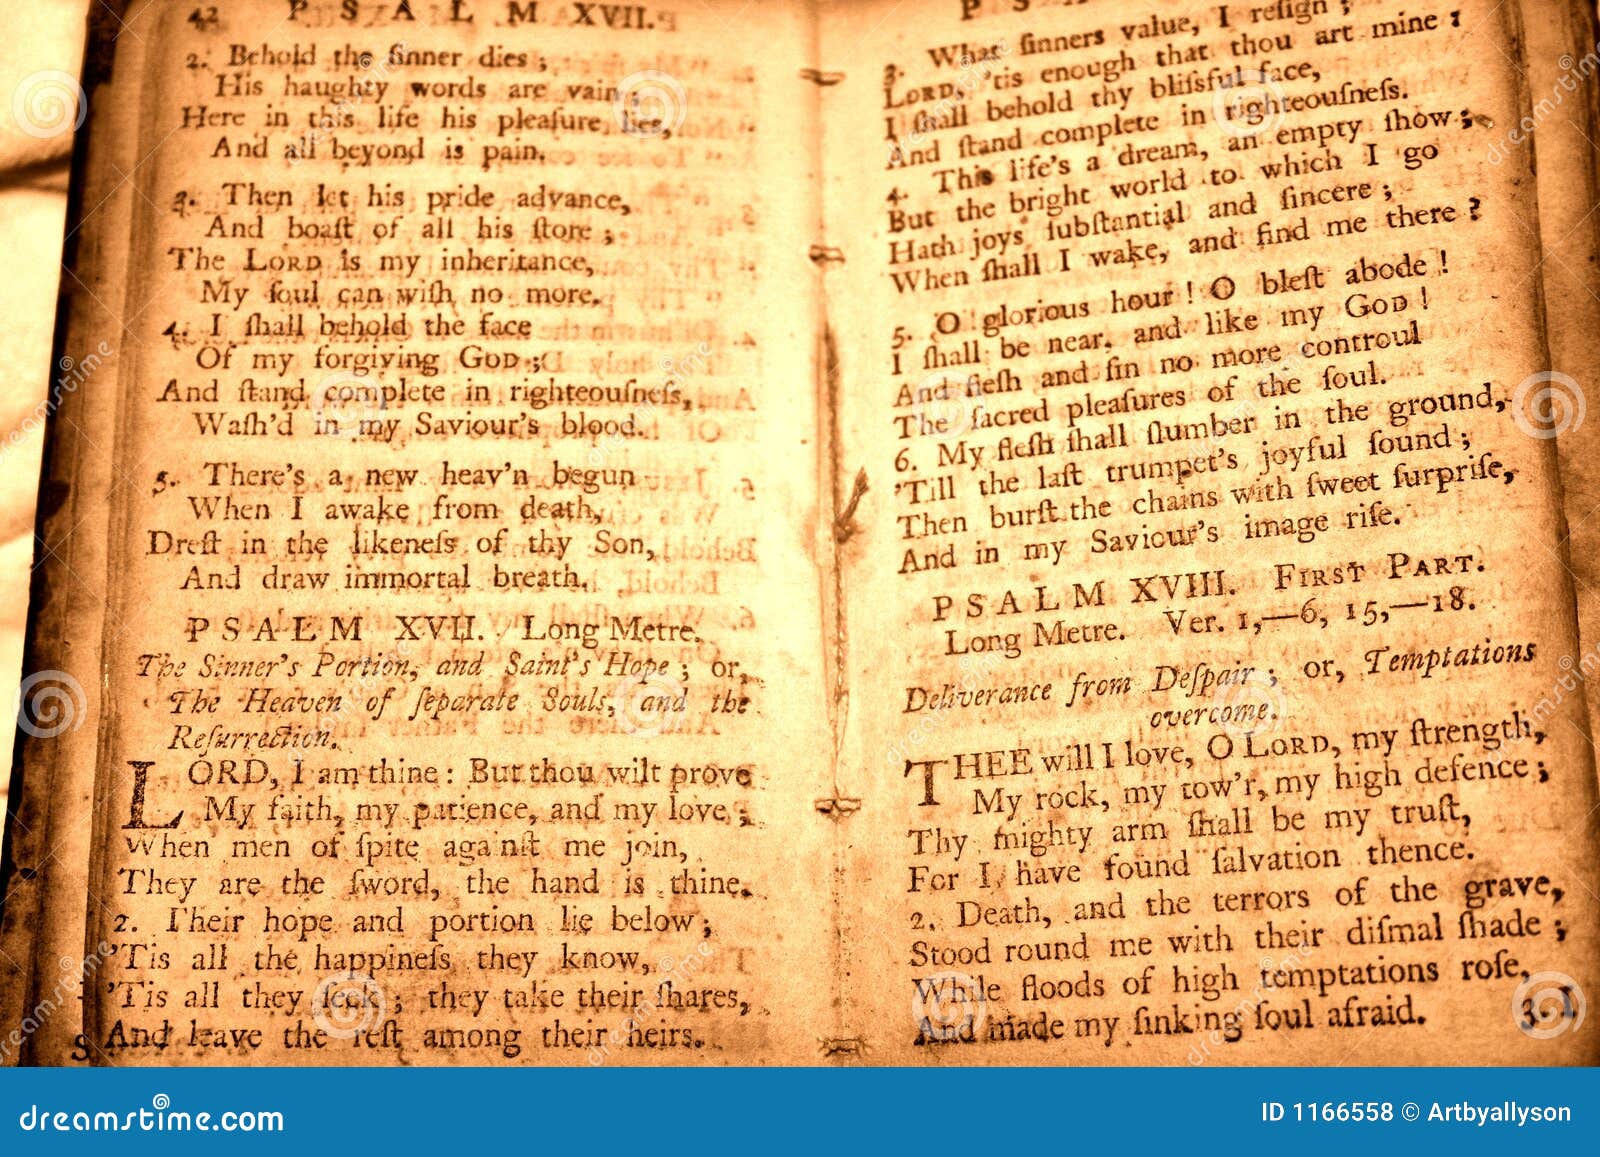 42 PSALM XVII.
2. Behold the ſinner dies;
His haughty words are vain;
Here in this life his pleaſure lies,
And all beyond is pain.
3. Then let his pride advance,
And boaſt of all his ſtore;
The LORD is my inheritance,
My ſoul can wiſh no more.
4. I ſhall behold the face
Of my forgiving GOD;
And ſtand complete in righteouſneſs,
Waſh'd in my Saviour's blood.
5. There's a new heav'n begun
When I awake from death,
Dreſt in the likeneſs of thy Son,
And draw immortal breath.
PSALM XVII. Long Metre.
The Sinner's Portion, and Saint's Hope; or,
The Heaven of ſeparate Souls, and the
Reſurrection.
LORD, I am thine: But thou wilt prove
My faith, my patience, and my love;
When men of ſpite againſt me join,
They are the ſword, the hand is thine.
2. Their hope and portion lie below;
'Tis all the happineſs they know,
'Tis all they ſeek; they take their ſhares,
And leave the reſt among their heirs.
3. What ſinners value, I reſign;
LORD, 'tis enough that thou art mine:
I ſhall behold thy bliſsful face,
And ſtand complete in righteouſneſs.
4. This life's a dream, an empty ſhow;
But the bright world to which I go
Hath joys ſubſtantial and ſincere;
When ſhall I wake, and find me there?
5. O glorious hour! O bleſt abode!
I ſhall be near, and like my GOD!
And fleſh and ſin no more controul
The ſacred pleaſures of the ſoul.
6. My fleſh ſhall ſlumber in the ground,
'Till the laſt trumpet's joyful ſound;
Then burſt the chains with ſweet ſurpriſe,
And in my Saviour's image riſe.
PSALM XVIII. FIRST PART.
Long Metre. Ver. 1,—6, 15,—18.
Deliverance from Deſpair; or, Temptations
overcome.
THEE will I love, O LORD, my ſtrength,
My rock, my tow'r, my high defence;
Thy mighty arm ſhall be my truſt,
For I have found ſalvation thence.
2. Death, and the terrors of the grave,
Stood round me with their diſmal ſhade;
While floods of high temptations roſe,
And made my ſinking ſoul afraid.
3. I
dreamstime.com
ID 1166558 © Artbyallyson